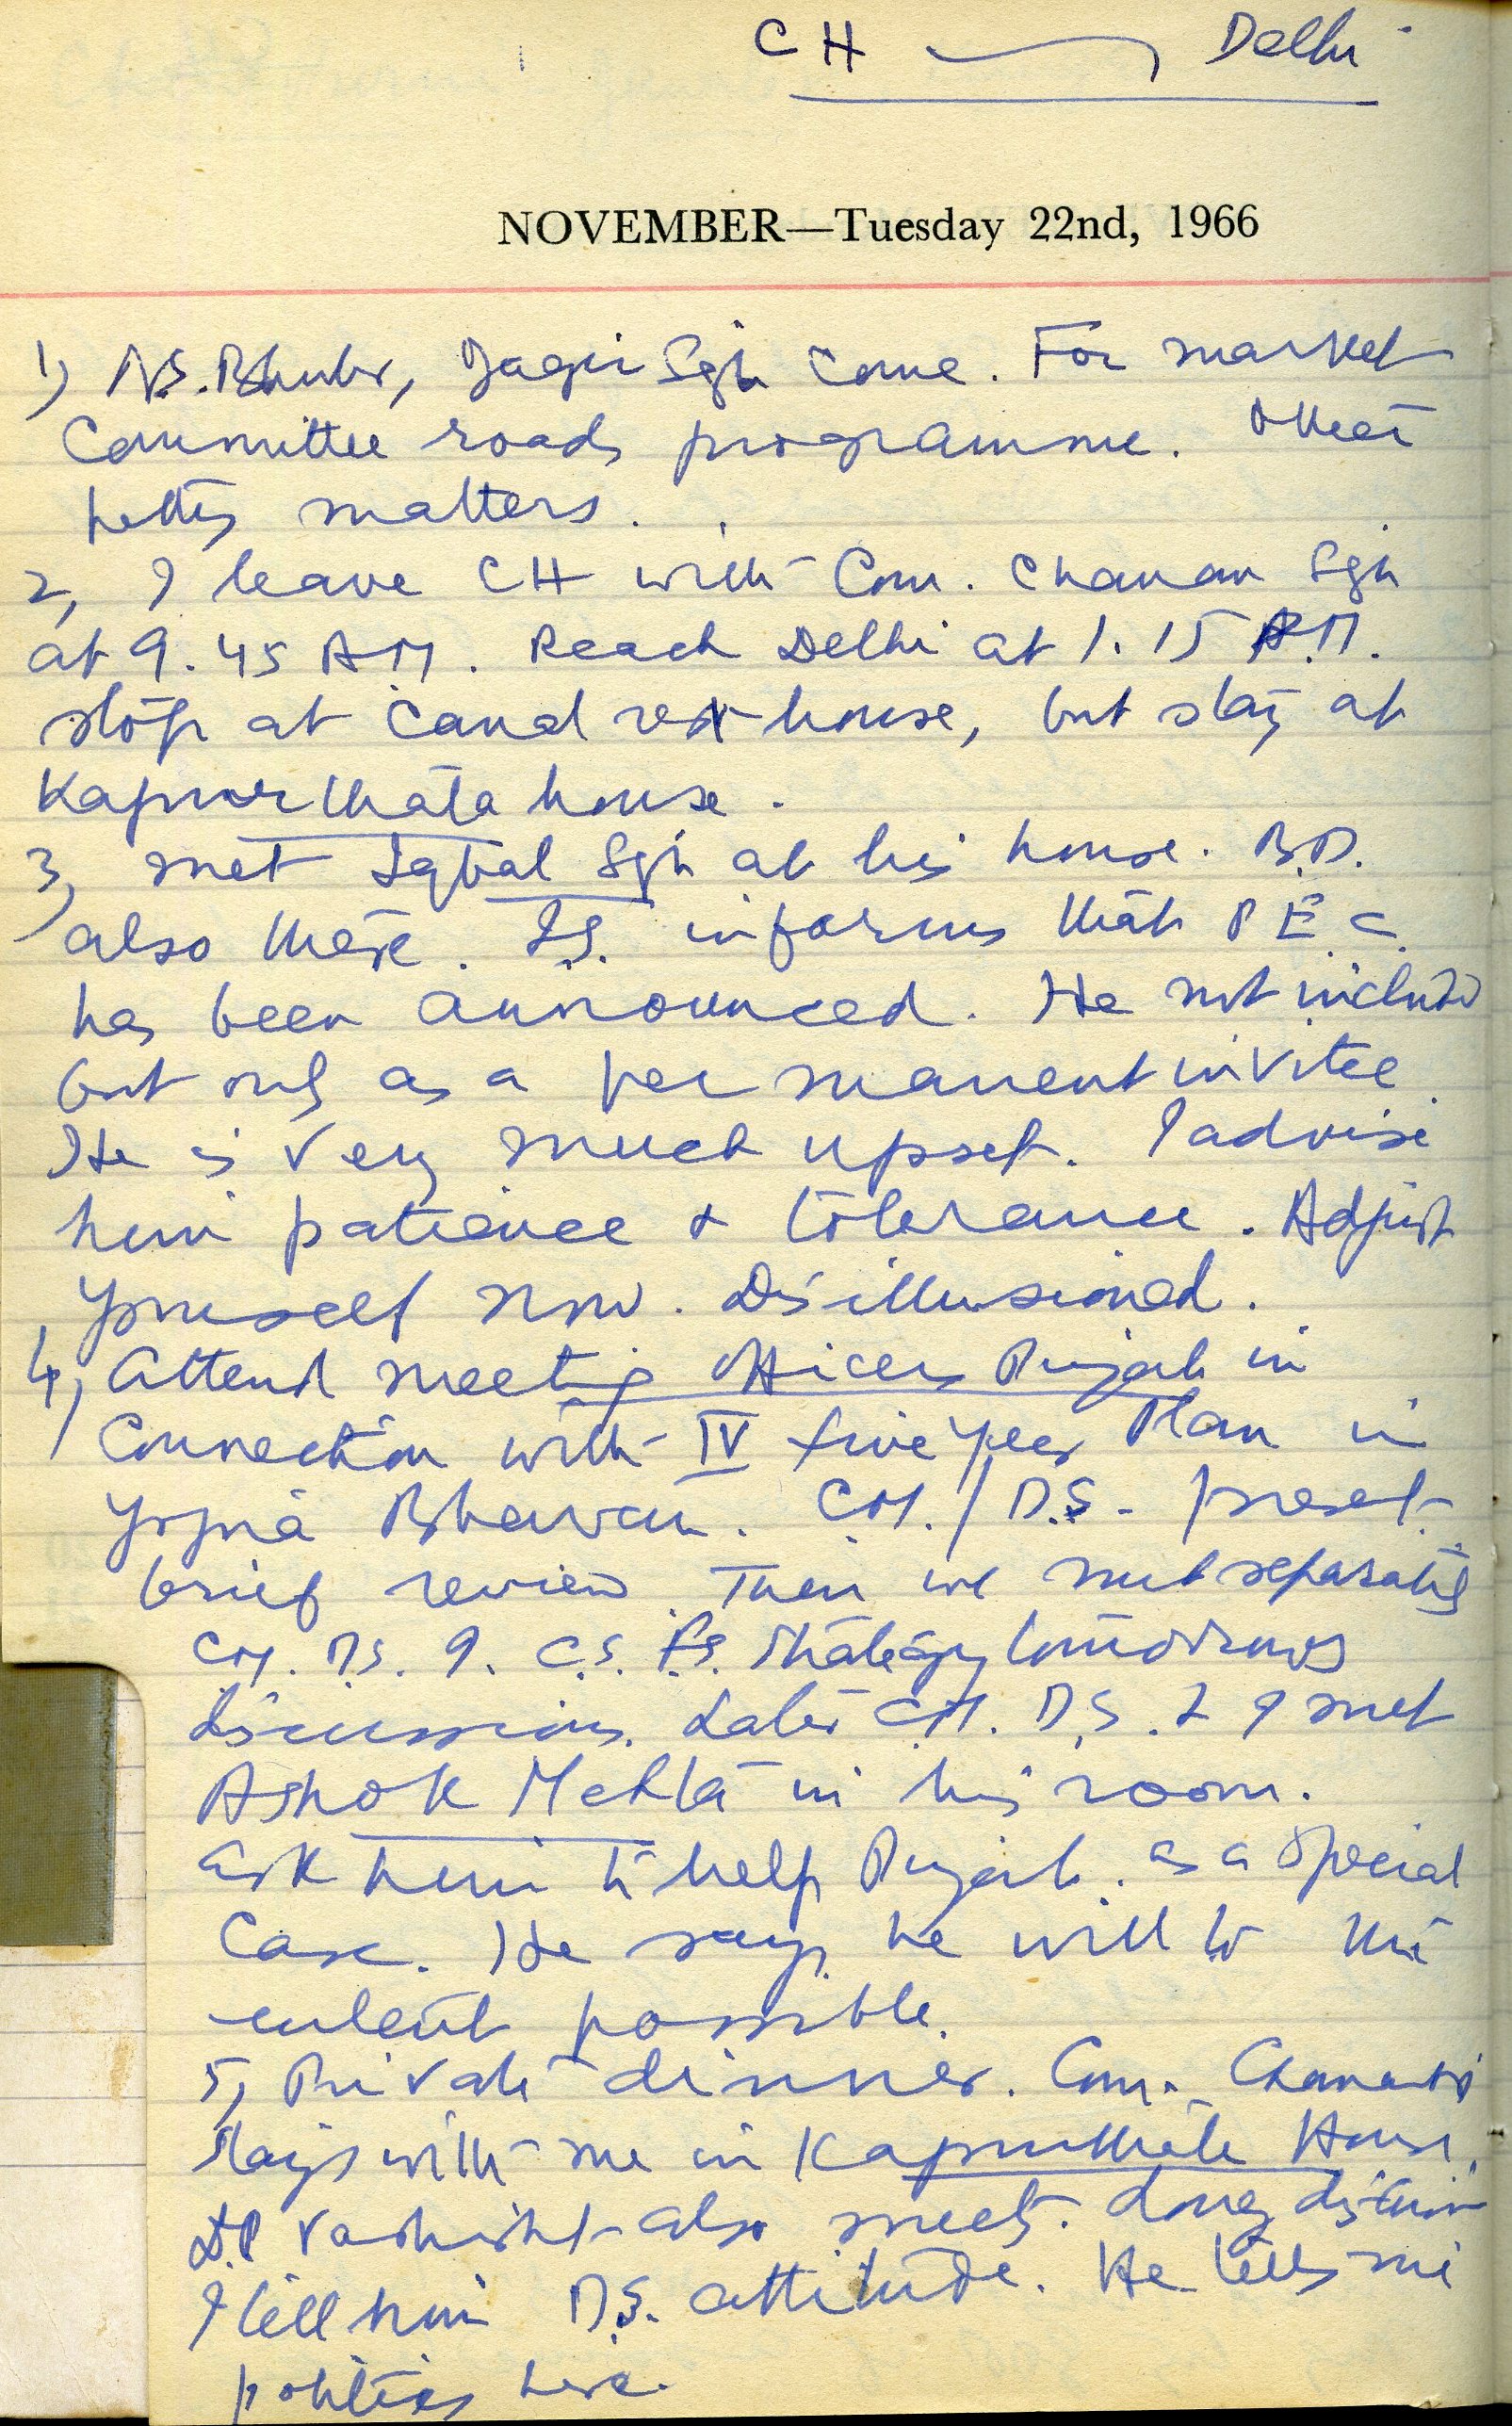 CH — Delhi
NOVEMBER—Tuesday 22nd, 1966
1) Jagir Sgh Come. For market
Committee roads programme. Other
petty matters.
2, I leave CH with Com. Chanan Sgh
at 9.45 A.M. Reach Delhi at 1.15 P.M.
stop at Canal rest house, but stay at
Kapurthala house.
3, met Iqbal Sgh at his house. B.D.
also there. I.S. informs that P.E.C.
has been announced. He not included
but only as a permanent invitee.
He is very much upset. I advise
him patience & tolerance. Adjust
yourself now. Disillusioned.
4, Attend meeting officers Punjab in
Connection with IV five year Plan in
Yojna Bhawan. C.M./D.S. present.
brief review. Then we met separately
C.M. D.S. I. C.S. F.S. Strategy tomorrows
discussions. Later C.M. D.S. & I met
Ashok Mehta in his room.
ask him to help Punjab. as a special
Case. He says he will to the
extent possible.
5, Private dinner. Com. Chanan
stays with me in Kapurthala House.
Vashisht also meets. Long
I tell him D.S. attitude. He tells me
politics here.